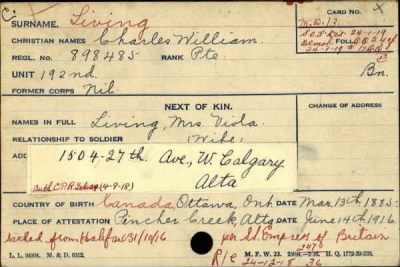 C.
CARD NO.
SURNAME. Living
CHRISTIAN NAMES Charles William.
REGL. NO. 898485 RANK Pte.
UNIT 192nd. Bn.
FORMER CORPS Nil
S.O.S. 24-1-19
FOLL
NEXT OF KIN.
CHANGE OF ADDRESS
NAMES IN FULL Living, Mrs. Viola.
RELATIONSHIP TO SOLDIER Wife.
ADD
1504-27th Ave., W. Calgary
Alta
(4-9-18)
COUNTRY OF BIRTH Canada, Ottawa, Ont. DATE Mar. 13th. 1885.
PLACE OF ATTESTATION Pincher Creek, Alta DATE June 14th 1916
Sailed from Halifax 31/10/16 per SS Empress of Britain
R/c 24-12-18 36
L. L. 94804. M. & D. 6312.
M. F. W. 22.
H. Q. 1772-39-339.